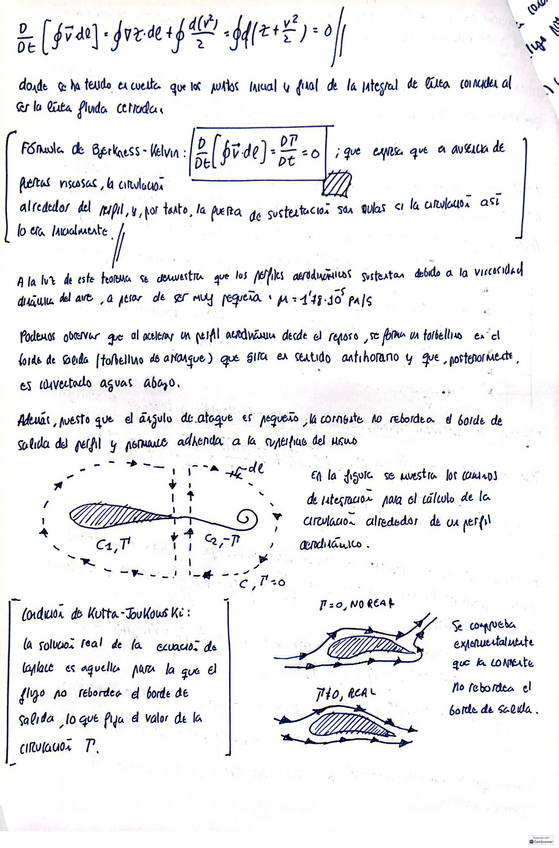 D/Dt [∮ v⃗ dl] = ∮ ∇z·dl + ∮ d(v²)/2 = ∮ d(z + v²/2) = 0 //
donde se ha tenido en cuenta que los puntos inicial y final de la integral de línea coinciden al
ser la línea fluida cerrada.
Fórmula de Bjerkness-Kelvin: D/Dt [∮ v⃗·dl] = DΓ/Dt = 0 ; que expresa que en ausencia de
fuerzas viscosas, la circulación
alrededor del perfil, y, por tanto, la fuerza de sustentación son nulas si la circulación así
lo era inicialmente. //
A la luz de este teorema se demuestra que los perfiles aerodinámicos sustentan debido a la viscosidad
dinámica del aire, a pesar de ser muy pequeña. μ = 1'78·10⁻⁵ Pa/s
Podemos observar que al acelerar un perfil aerodinámico desde el reposo, se forma un torbellino en el
borde de salida (torbellino de arranque) que gira en sentido antihorario y que, posteriormente,
es convectado aguas abajo.
Además, puesto que el ángulo de ataque es pequeño, la corriente no rebordea el borde de
salida del perfil y permanece adherida a la superficie del mismo
dl
C₁, Γ
C₂, -Γ
C, Γ=0
En la figura se muestra los caminos
de integración para el cálculo de la
circulación alrededor de un perfil
aerodinámico.
Condición de Kutta-Joukowski:
la solución real de la ecuación de
Laplace es aquella para la que el
flujo no rebordea el borde de
salida, lo que fija el valor de la
circulación Γ.
Γ=0, NO REAL
Γ≠0, REAL
Se comprueba
experimentalmente
que la corriente
no rebordea el
borde de salida.
CamScanner